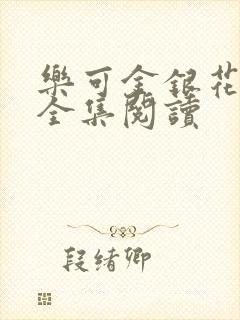 樂可金銀花
全集閱讀
段绪卿